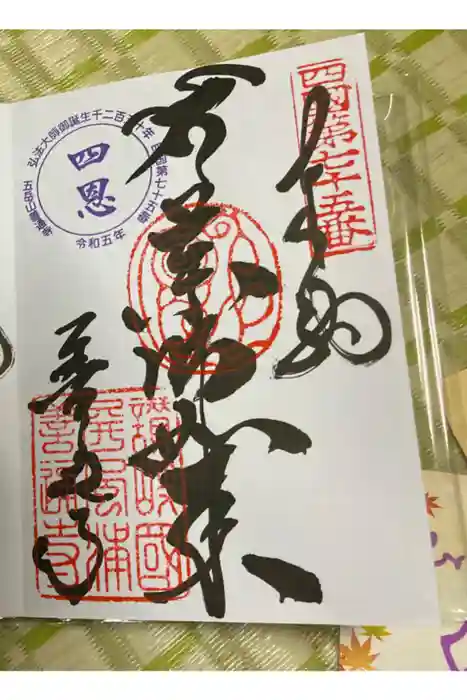 四國第七十五番
奉納
薬師如来
善通寺
弘法大師御誕生千二百五十年
四国第七十五番
四恩
令和五年
五岳山善通寺
讃岐國
屏風浦
善通寺